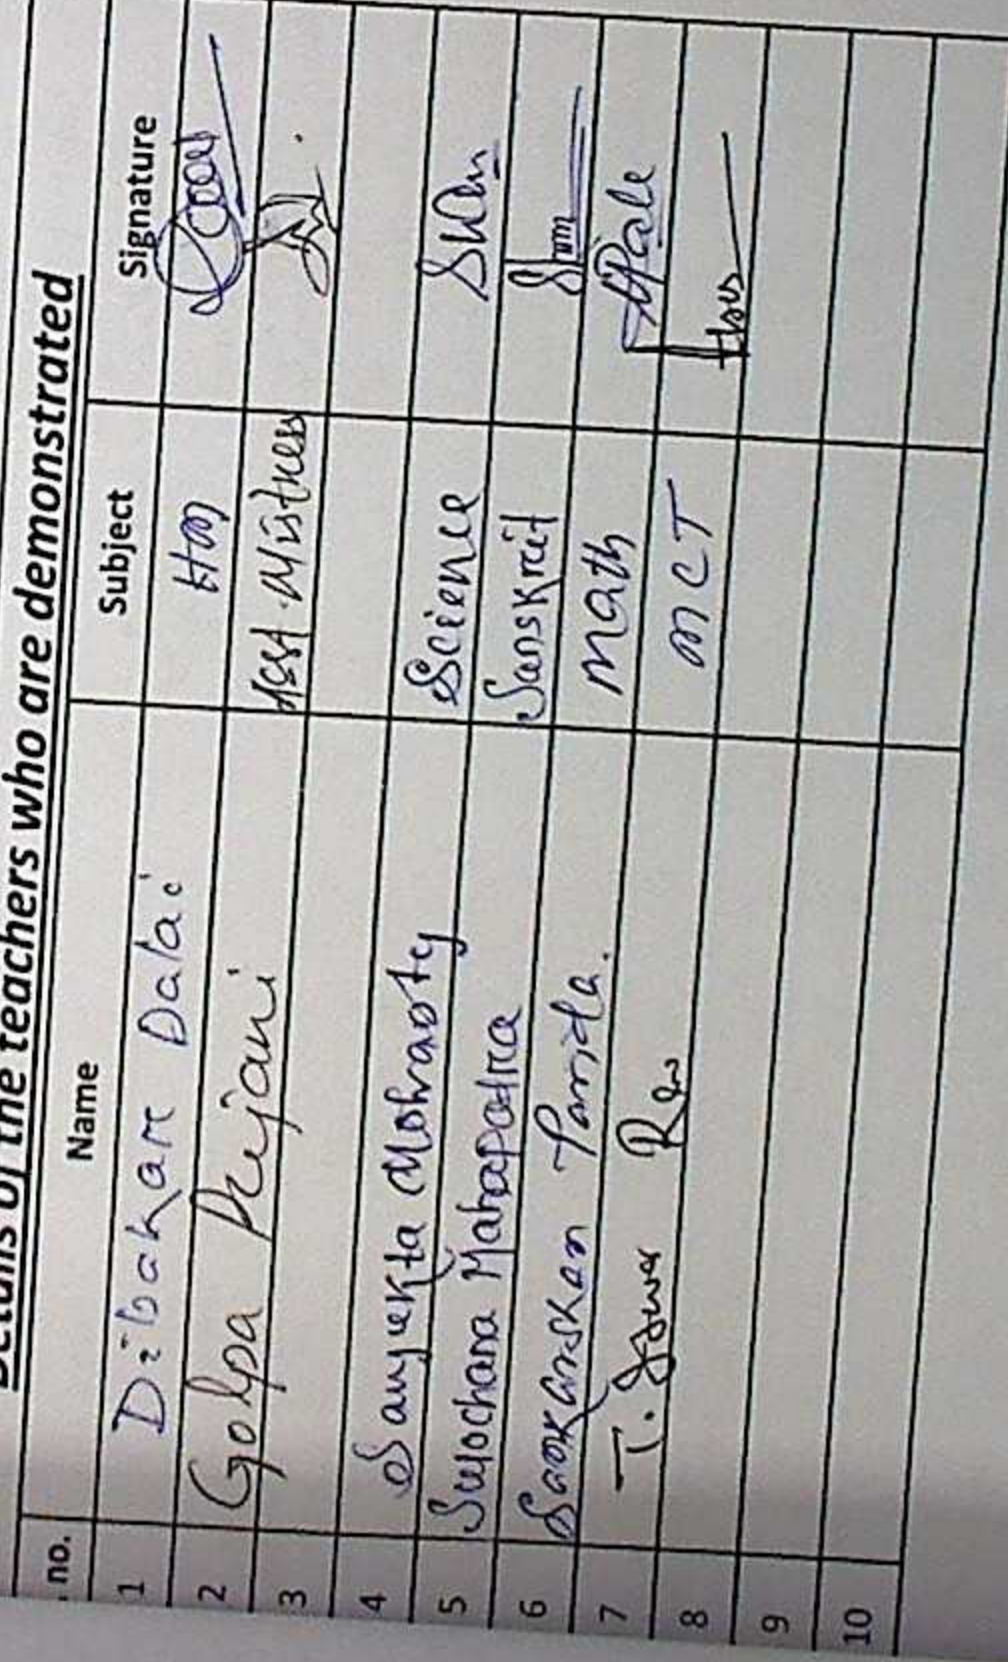 Details of the teachers who are demonstrated
. no. Name Subject Signature
1 Dibakar Dalai HM
2 Golpa Pujani Asst. Mistress
3
4 Sanyukta Mohanaty Science
5 Sulochana Mahapatra Sanskrit
6 Sankarshan Parida. Math
7 T. Rao MCT
8
9
10